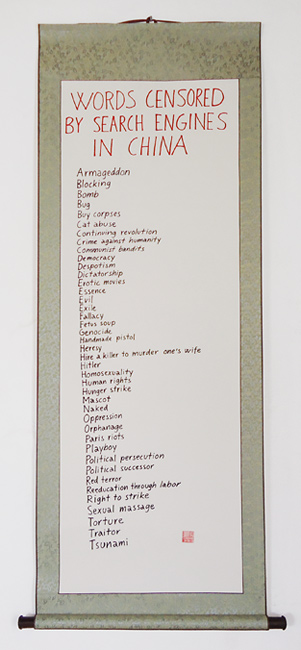 WORDS CENSORED
BY SEARCH ENGINES
IN CHINA
Armageddon
Blocking
Bomb
Bug
Buy corpses
Cat abuse
Continuing revolution
Crime against humanity
Communist bandits
Democracy
Despotism
Dictatorship
Erotic movies
Essence
Evil
Exile
Fallacy
Fetus soup
Genocide
Handmade pistol
Heresy
Hire a killer to murder one's wife
Hitler
Homosexuality
Human rights
Hunger strike
Mascot
Naked
Oppression
Orphanage
Paris riots
Playboy
Political persecution
Political successor
Red terror
Reeducation through labor
Right to strike
Sexual massage
Torture
Traitor
Tsunami